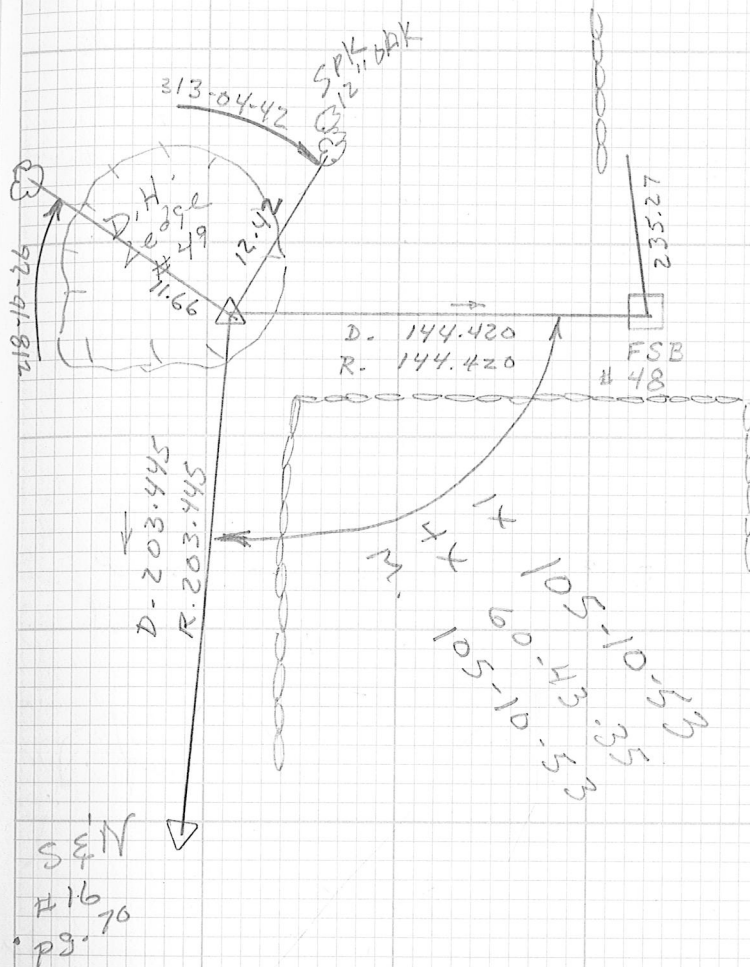 313-04-42
SPK
12" OAK
D.H.
Ledge
#49
12.42
11.66
218-16-26
235.27
D. 144.420
R. 144.420
FSB
#48
D- 203.445
R. 203.445
1x 105-10-53
4x 60-43-35
M. 105-10-53
S & N
#16
pg. 70